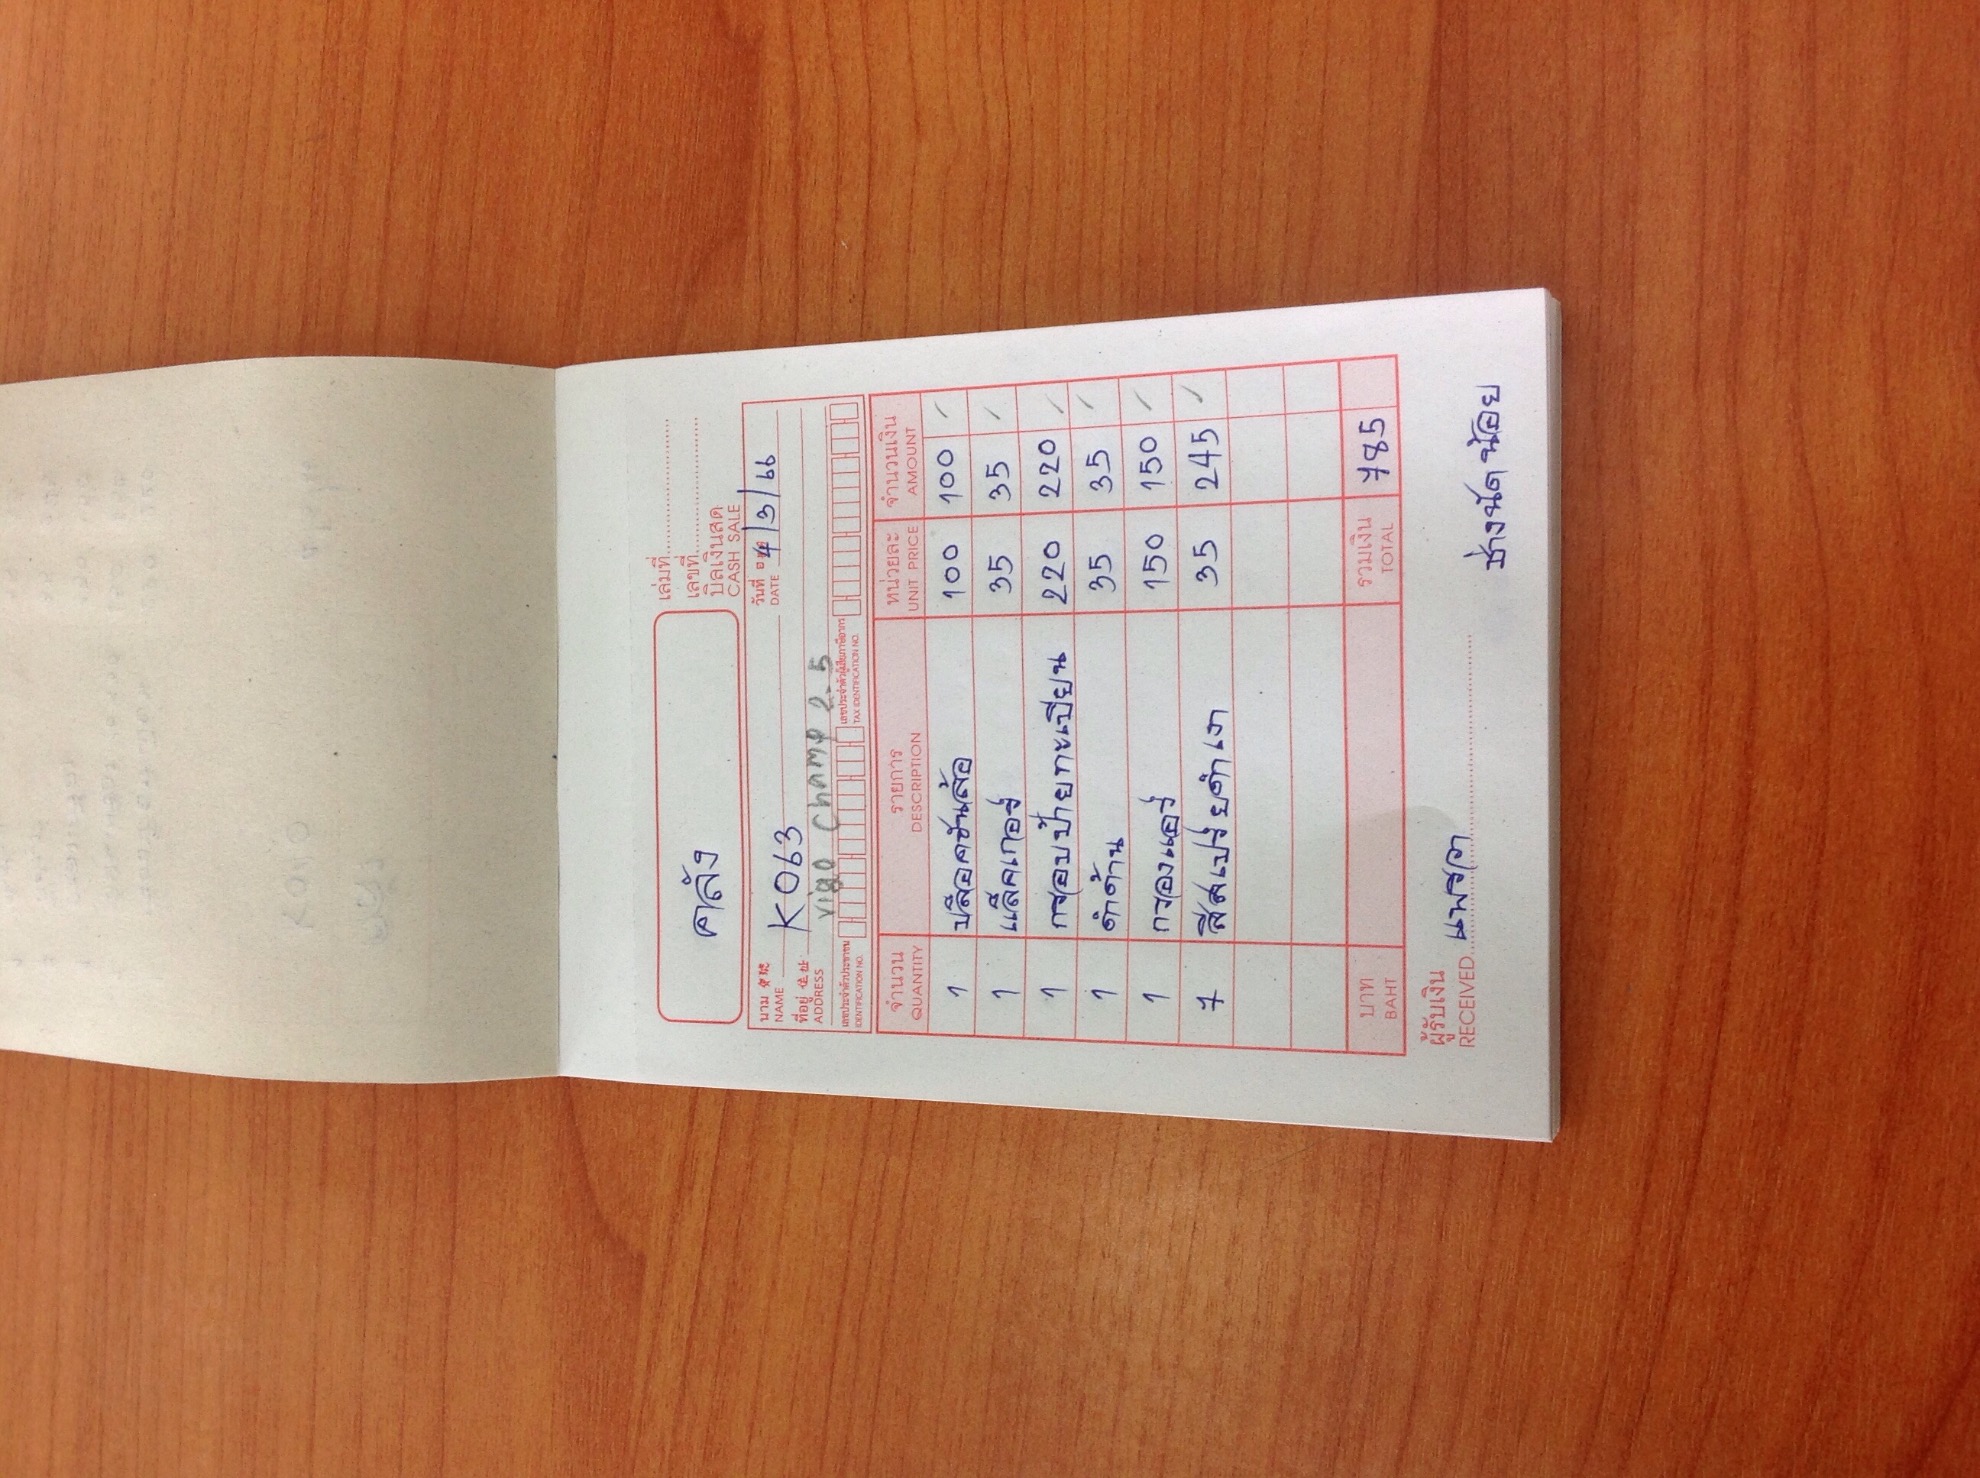 คลัง
เล่มที่
เลขที่
บิลเงินสด
CASH SALE
นาม K063 วันที่ 4/3/66
NAME DATE
ที่อยู่ vigo Champ 2.5
ADDRESS
เลขประจำตัวประชาชน เลขประจำตัวผู้เสียภาษีอากร
IDENTIFICATION NO. TAX IDENTIFICATION NO.
จำนวน รายการ หน่วยละ จำนวนเงิน
QUANTITY DESCRIPTION UNIT PRICE AMOUNT
1 บล๊อคขันล้อ 100 100
1 แล็คเกอร์ 35 35
1 กรอบป้ายทะเบียน 220 220
1 ดำด้าน 35 35
1 กรองแอร์ 150 150
7 สีสเปร์ยดำเงา 35 245
บาท รวมเงิน 785
BAHT TOTAL
ผู้รับเงิน
RECEIVED แพรวา
ช่างนัดน้อย